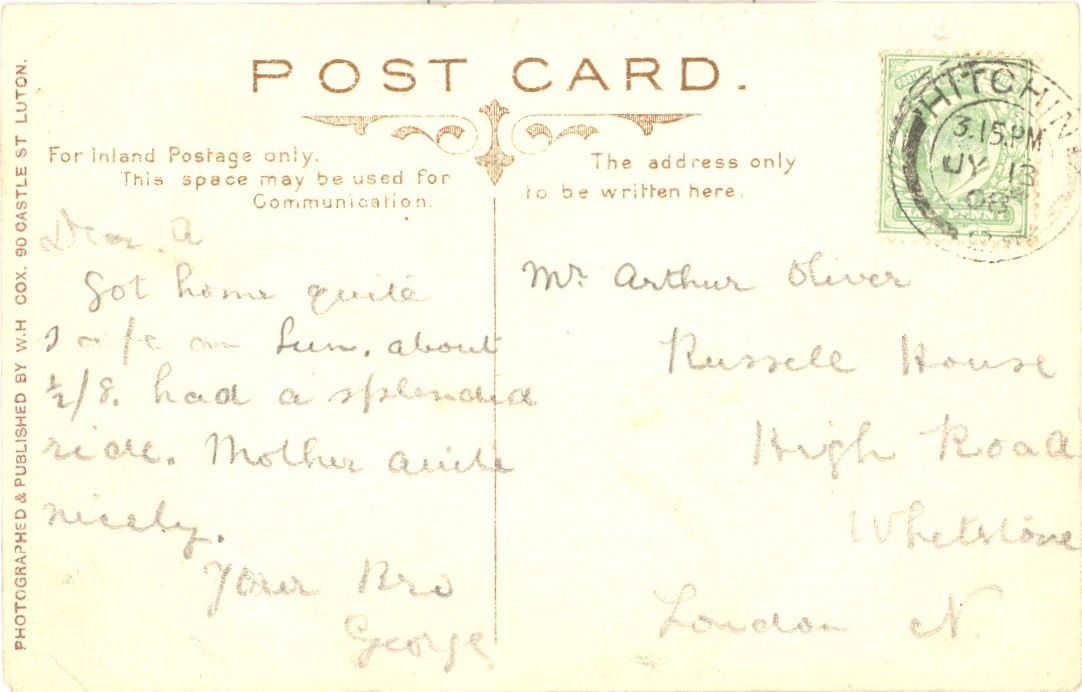 POST CARD.
For Inland Postage only.
This space may be used for
Communication.
The address only
to be written here.
HITCHIN
3.15PM
JY 13
08
HALFPENNY
PHOTOGRAPHED & PUBLISHED BY W.H COX. 90 CASTLE ST LUTON.
Dear A
Got home quite
safe on Sun. about
½/8. had a splendid
ride. Mother quite
nicely.
Your Bro
George
Mr. Arthur Oliver
Russell House
High Road
Whetstone
London N.